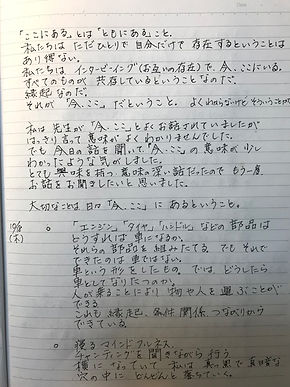 「ここにある」とは"ともにある"こと。
私たちは ただひとりで 自分だけで 存在するということは
あり得ない。
私たちは インタービーイング(お互いの存在)で、今、ここにいる。
すべてのものが 共存しているということなのだ。
縁起なのだ。
それが「今、ここ」だということ。 よくわらないけど そういうことか
私は 先生が「今、ここ」とよくお話されていましたが
はっきり言って 意味が よくわかりませんでした。
でも 今日の話を聞いて"今、ここ"の意味が 少し
わかったような気がしました。
とても 興味を持つ 意味の深い話だったので もう一度
お話をお聞きしたいと思いました。
大切なことは 日々「今、ここ」に あるということ。
(木)
○ "エンジン" "タイヤ" "ハンドル" などの 部品は
どうすれば 車になるか。
それらの部品を 組み立てる。でも それで
できたのは 車ではない。
車という 形をしたもの。では、どうしたら
車としてなりたつのか。
人が乗ることにより 物や人を 運ぶことが
できる
これも 縁起、条件、関係、つながりから
できている。
○ 寝る マインドフルネス。
チャンティングを聞きながら 行う
横になっていて 私は 真っ黒で 真っ暗な
穴の中に どんどんと 落ちていった。